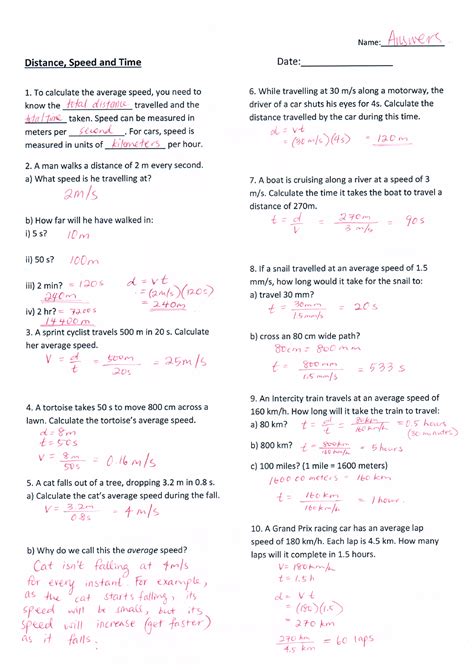 Name: Answers
Distance, Speed and Time
Date:
1. To calculate the average speed, you need to
know the total distance travelled and the
total time taken. Speed can be measured in
meters per second. For cars, speed is
measured in units of kilometers per hour.
2. A man walks a distance of 2 m every second.
a) What speed is he travelling at?
2m/s
b) How far will he have walked in:
i) 5 s? 10m
ii) 50 s? 100m
iii) 2 min? = 120s
240m
d = vt
= (2m/s)(120s)
= 240m
iv) 2 hr? = 7200s
14400m
3. A sprint cyclist travels 500 m in 20 s. Calculate
her average speed.
V = d/t = 500m/20s = 25m/s
4. A tortoise takes 50 s to move 800 cm across a
lawn. Calculate the tortoise's average speed.
d = 8m
t = 50s
V = 8m/50s = 0.16 m/s
5. A cat falls out of a tree, dropping 3.2 m in 0.8 s.
a) Calculate the cat's average speed during the fall.
V = 3.2m/0.8s = 4 m/s
b) Why do we call this the average speed?
Cat isn't falling at 4m/s
for every instant. For example,
as the cat starts falling, its
speed will be small, but its
speed will increase (get faster)
as it falls.
6. While travelling at 30 m/s along a motorway, the
driver of a car shuts his eyes for 4s. Calculate the
distance travelled by the car during this time.
d = vt
= (30 m/s)(4s) = 120m
7. A boat is cruising along a river at a speed of 3
m/s. Calculate the time it takes the boat to travel a
distance of 270m.
t = d/v = 270m/3 m/s = 90s
8. If a snail travelled at an average speed of 1.5
mm/s, how long would it take for the snail to:
a) travel 30 mm?
t = 30mm/1.5mm/s = 20s
b) cross an 80 cm wide path?
80cm = 800 mm
t = 800mm/1.5mm/s = 533 s
9. An Intercity train travels at an average speed of
160 km/h. How long will it take the train to travel:
a) 80 km? t = d/v = 80km/160km/h = 0.5 hours
(30 minutes)
b) 800 km? t = 800km/160km/h = 5 hours
c) 100 miles? (1 mile = 1600 meters)
160000 meters = 160 km
t = 160 km/160 km/h = 1 hour.
10. A Grand Prix racing car has an average lap
speed of 180 km/h. Each lap is 4.5 km. How many
laps will it complete in 1.5 hours.
V = 180km/h
t = 1.5h
d = vt
= (180)(1.5)
= 270km
270km/4.5 km = 60 laps